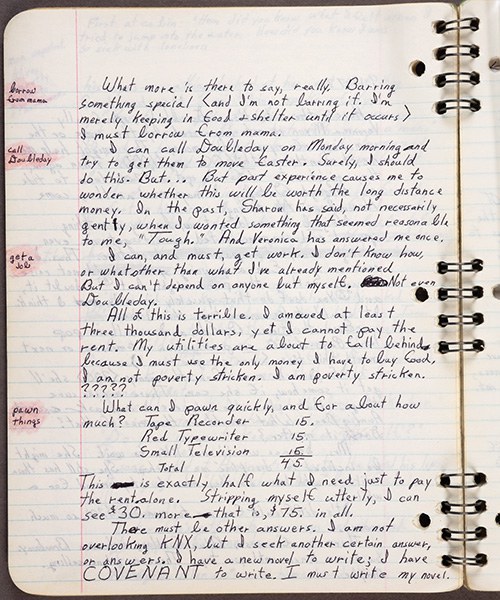 What more is there to say, really. Barring
borrow
from mama
something special <and I'm not barring it. I'm
merely keeping in food + shelter until it occurs>
I must borrow from mama.
call
Doubleday
I can call Doubleday on Monday morning and
try to get them to move faster. Surely, I should
do this. But... But past experience causes me to
wonder whether this will be worth the long distance
money. In the past, Sharon has said, not necessarily
gently, when I wanted something that seemed reasonable
to me, "Tough." And Veronica has answered me once.
get a
job
I can, and must, get work. I don't know how,
or what other than what I've already mentioned
But I can't depend on anyone but myself. Not even
Doubleday.
All of this is terrible. I am owed at least
three thousand dollars, yet I cannot pay the
rent. My utilities are about to fall behind
because I must use the only money I have to buy food.
I am not poverty stricken. I am poverty stricken.
?????
pawn
things
What can I pawn quickly, and for about how
much? Tape Recorder 15.
Red Typewriter 15.
Small Television 15.
Total 45.
This is exactly half what I need just to pay
the rent alone. Stripping myself utterly, I can
see $30. more that is, $75. in all.
There must be other answers. I am not
overlooking KNX, but I seek another certain answer,
or answers. I have a new novel to write; I have
COVENANT to write. I must write my novel.